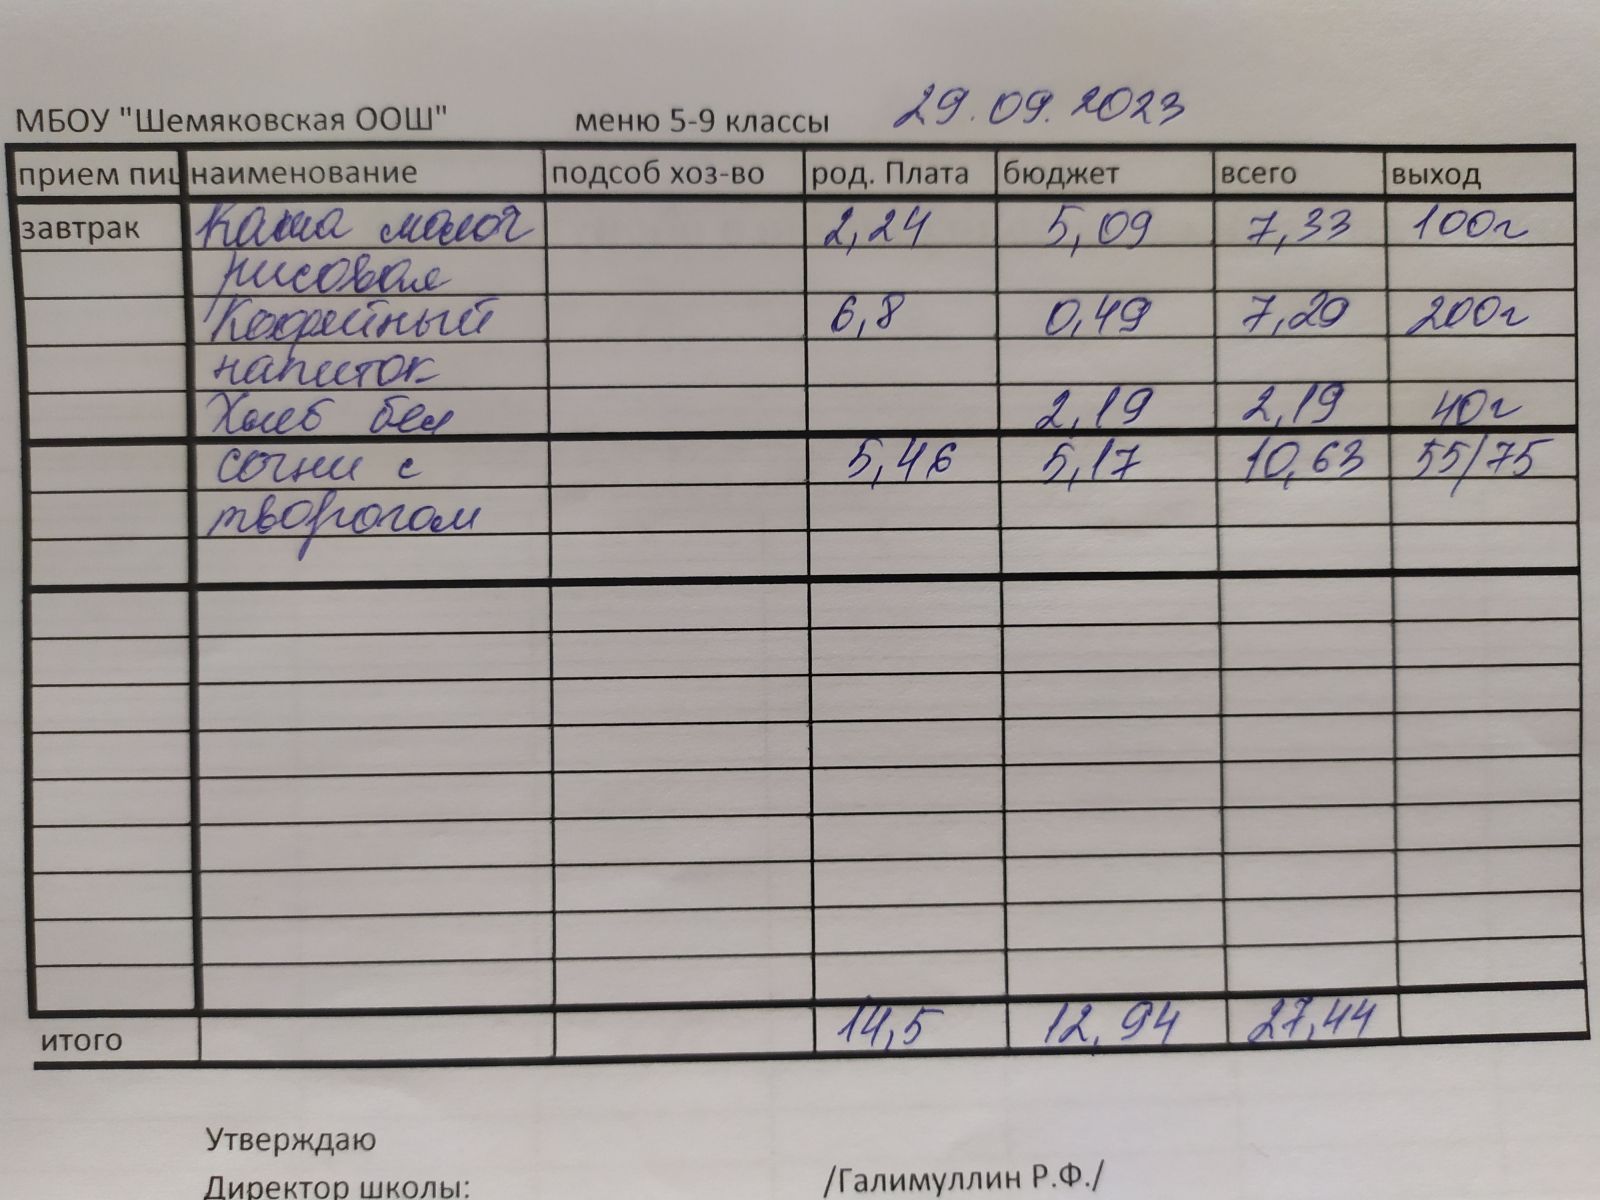 МБОУ "Шемяковская ООШ" меню 5-9 классы 29.09.2023
прием пищ наименование подсоб хоз-во род. Плата бюджет всего выход
завтрак Каша молоч 2,24 5,09 7,33 100г
рисовая
Кофейный 6,8 0,49 7,29 200г
напиток
Хлеб бел 2,19 2,19 40г
сочни с 5,46 5,17 10,63 55/75
творогом
итого 14,5 12,94 27,44
Утверждаю
Директор школы: /Галимуллин Р.Ф./